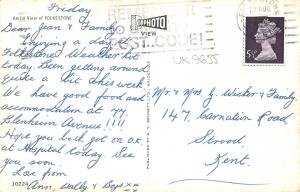 Friday
Aerial View of FOLKESTONE
Dear Jean & Family
Enjoying a day in
Folkestone Weather hot
today Been getting around
quite a bit this week
We have good food
and accommodation at 77
Blenheim Avenue !!!!
Hope you both got on O.K
at Hospital today. See
you soon.
Love from
Ann, Wally & Boys xx
10224
PHOTO
VIEW
REMEMBER
POST CODE!
UK 9655
AUG
5½P
Mr & Mrs G Wicker & Family
147 Carnation Road
Strood.
Kent.